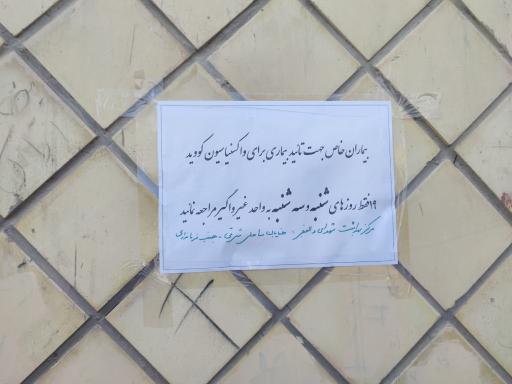 بیماران خاص جهت تائید بیماری برای واکسیناسیون کووید
۱۹ فقط روزهای شنبه و سه شنبه به واحد غیرواگیر مراجعه نمایند
مرکز بهداشت شهدای والفجر - خیابان ساحلی شرقی - جنب فرمانداری